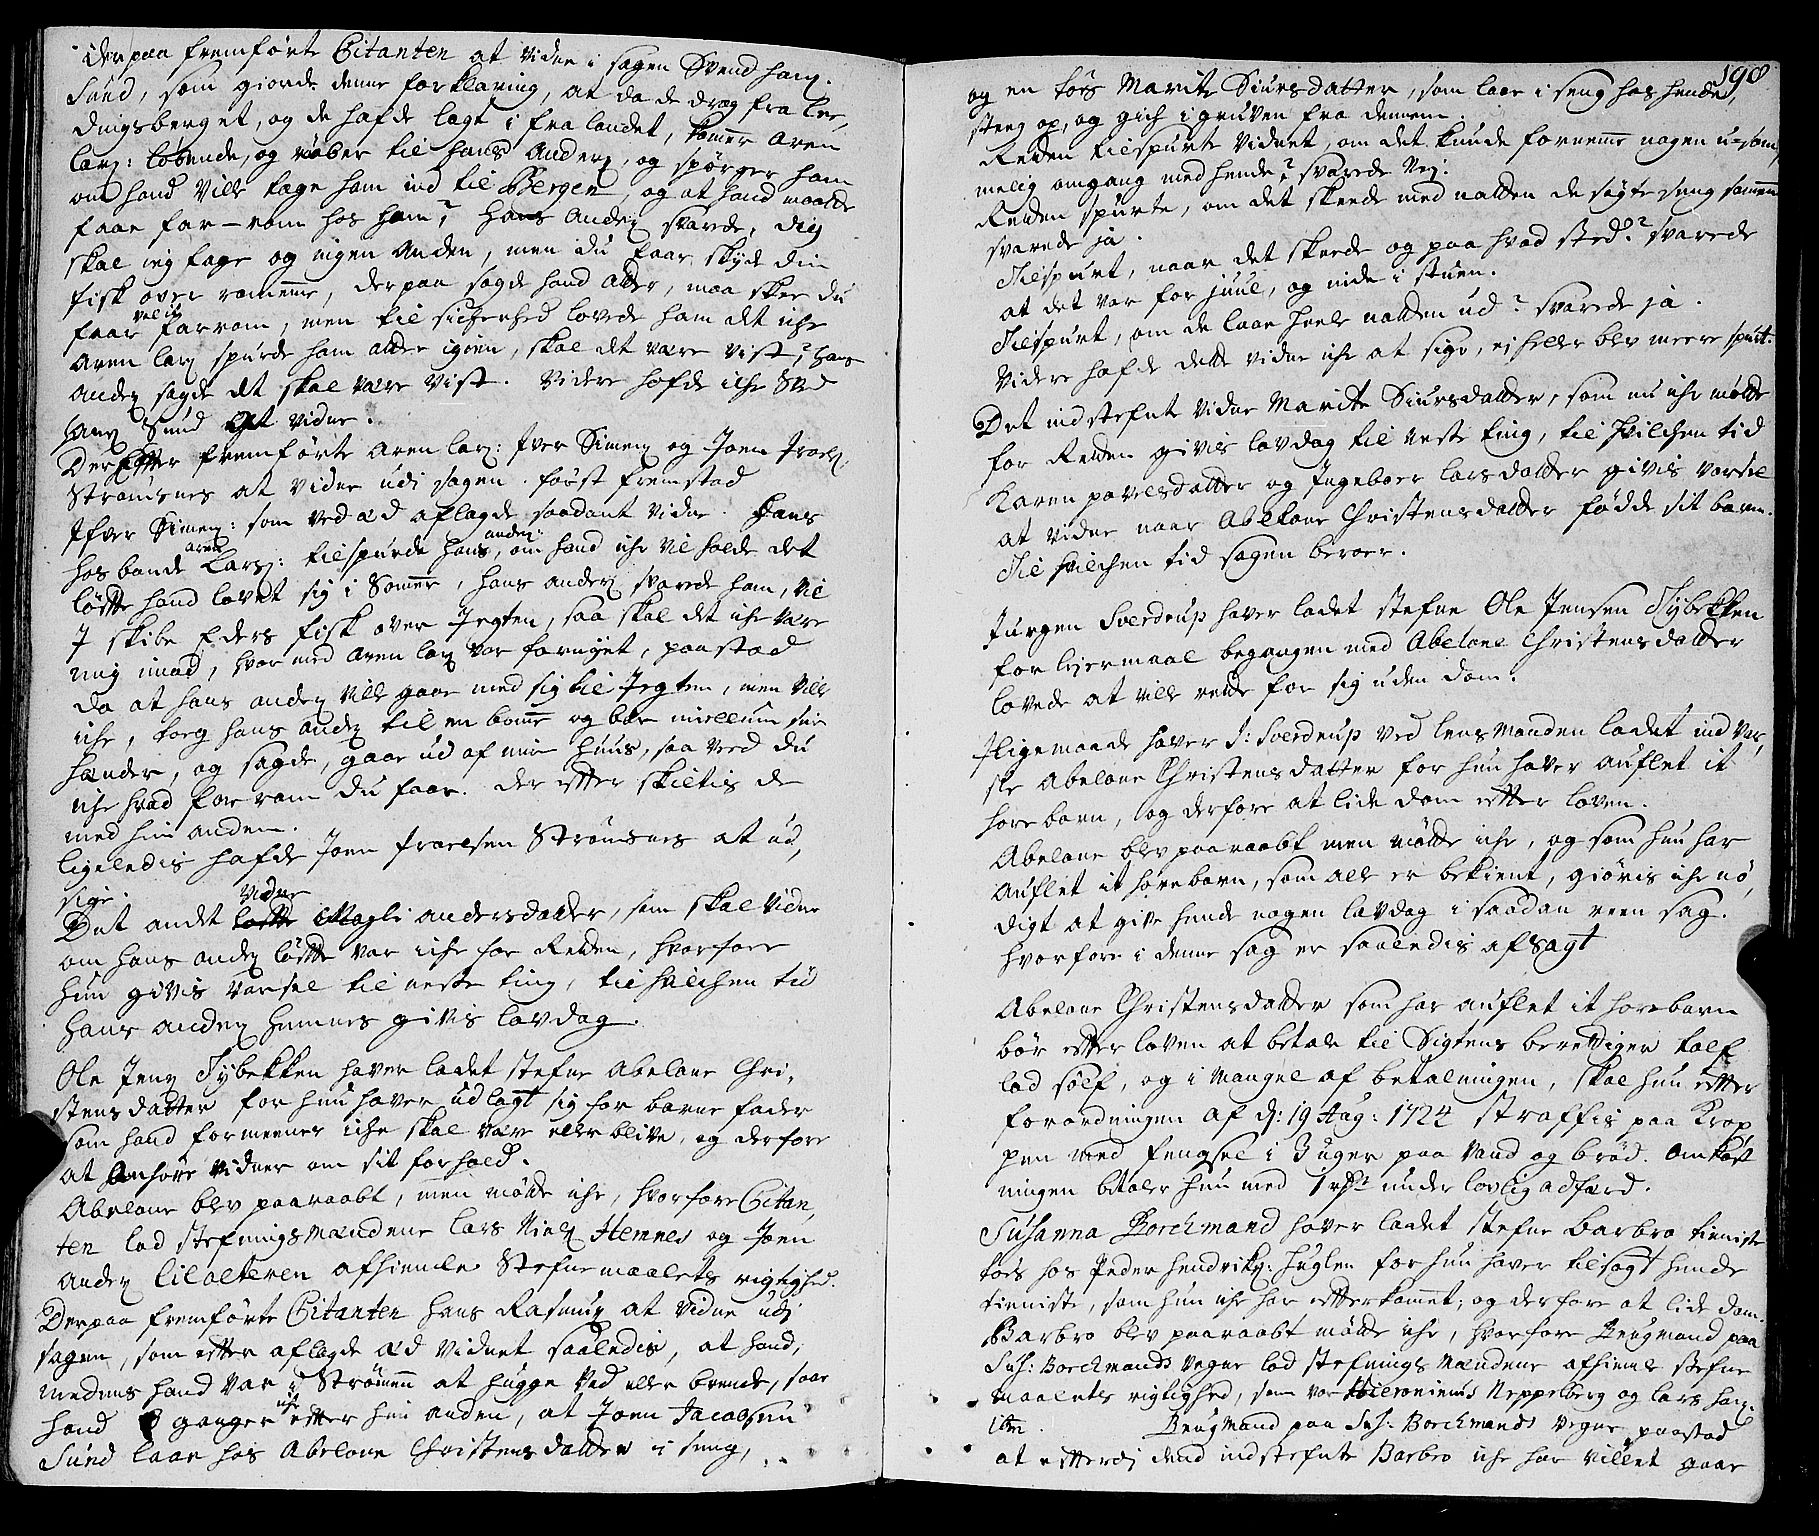 Derpaa fremførte Citanten at vidne i sagen Svend hanß:
Sund, som giorde denne forklaring, at da de drog fra
dingsberget, og de hafde lagt i fra landet, kommer Aren
larß: løbende, og raaber til hans Anderß, og spørger ham
om hand ville tage ham ind til Bergen og at hand maatte
faae far-rom hos ham? Hans Anderß svarede, dig
skal ieg tage og ingen anden, men du faar skyde din
fisk over remmene, derpaa sagde hand atter, maa skee du
faar vel ey farrom, men til sicherhed lovede ham det iche
Aren larß spurde ham atter igien, skal det være vist? Hans
Anderß sagde det skal være vist. Videre hafde iche Svend
hanß Sund at vidne.
Der Efter fremførte Aren larß: Iver Simenß og Joen Iversß
Strømsnes at vidne udi sagen. først fremstod
Ifver Simenß: som ved æd aflagde saadant vidne. Hans
hosbonde Aren Larß: tilspurde hans anderß, om hand iche vil holde det
løfte hand lovet sig i Sommer, hans anderß svarede ham, vil
I skibe Eders fisk over Jegten, saa skal det iche være
mig imod, hvor med Aren larß var fornøyet, paastod
da at hans anderß ville gaae med sig til Jegten, men ville
iche, tog hans anderß til en bomme og bar imellum sine
hænder, og sagde, gaae ud af mit huus, saa veed du
iche hvad far rom du faar. der efter skiltis de
med hin anden.
ligeledis hafde Joen Iverson Strømsnes at ud,
sige.
Det andet vidne Magli andersdatter, som skal vidne
om hans anderß løfte var iche for Retten, hvorfore
hun givis varsel til neste ting, til hvilchen tid
hans anderß Hemnes givis lavdag.
Ole Jenß Tybekken haver ladet stefne Abelone Chri,
stensdatter for hun haver udlagt sig for barne fader
som hand formeener iche skal være eller blive, og derfore
at anhøre vidner om sit forhold.
Abelone blev paaraabt, men mødte iche, hvorfore Citan,
ten lod stefningsmændene lars Nielß Hemnes og Joen
anderß lilaleteren afhiemle Stefnemaalets rigtighed.
Derpaa fremførte Citanten hans Rasmuß at vidne udi
sagen, som efter aflagde æd vidnet saaledis, at hand,
medens hand var i Strømmen at hugge ved eller brende, saae
hand gange iche efter hin anden, at Joen Jacobsen
Sund laae hos Abelone Christensdatter i seng,
198
og en tøs Marite Siursdatter, som laae i seng hos hende,
steeg op, og gich i gruven fra dennem.
Retten tilspurte vidnet, om det kunde fornemme nogen u-søm,
melig omgang med hende? svarede Nej.
Retten spurte, om det skeede med natten de søgte seng sammen
svarede ja.
Tilspurt, naar det skeede og paa hvad sted? svarede
at det var for juul, og inde i stuen.
Tilspurt, om de laae heele natten ud? svarede ja.
Videre hafde dette vidne iche at sige, ej heller blev meere spurt.
Det indstefnte vidne Marite Siursdatter, som nu iche mødte
for Retten givis lavdag til neste ting, til hvilchen tid
Karen pavelsdatter og Ingeboer larsdatter givis varsel
at vidne naar Abelone Christensdatter fødde sit barn.
Til hvilchen tid sagen beroer.
Jurgen Sverdrup haver ladet stefne Ole Jensen Tybekken
for leiermaal begangen med Abelone Christensdatter
lovede at ville rette for sig uden dom.
Iligemaade haver J: Sverdrup ved lensmanden ladet ind var,
sle Abelone Christensdatter for hun haver auflet it
horebarn, og derfore at lide dom efter loven.
Abelone blev paaraabt men mødte iche, og som hun har
auflet it horebarn, som alle er bekient, giøris iche nø,
digt at give hende nogen lavdag i saadan reen sag.
hvorfore i denne sag er saaledis afsagt
Abelone Christensdatter som har auflet it horebarn
bør efter loven at betale til Sigtens berettiger tolf
lod sølf, og i mangel af betalningen, skal hun efter
forordningen af d: 19 Aug: 1724 straffis paa Krop
pen med fengsel i 3 uger paa vand og brød. Omkost
ningen betaler hun med 1 rdr under lovlig adfærd.
Susanna Borchmand haver ladet stefne Barbro tieniste
tøs hos Peder Hendrikß: Huglen for hun haver tilsagt hende
tieniste, som hun iche har efterkommet, og derfore at lide dom.
Barbro blev paaraabt mødte iche, hvorfore Brugmand paa
Sus: Borchmands vegne lod stefnings mændene afhiemle stefne
maalets rigtighed, som var Hieronimus Neppelberg og lars hanß:
Brugmand paa Sus: Borchmands vegne paastod
at efterdj dend indstefnte Barbro iche har villet gaae